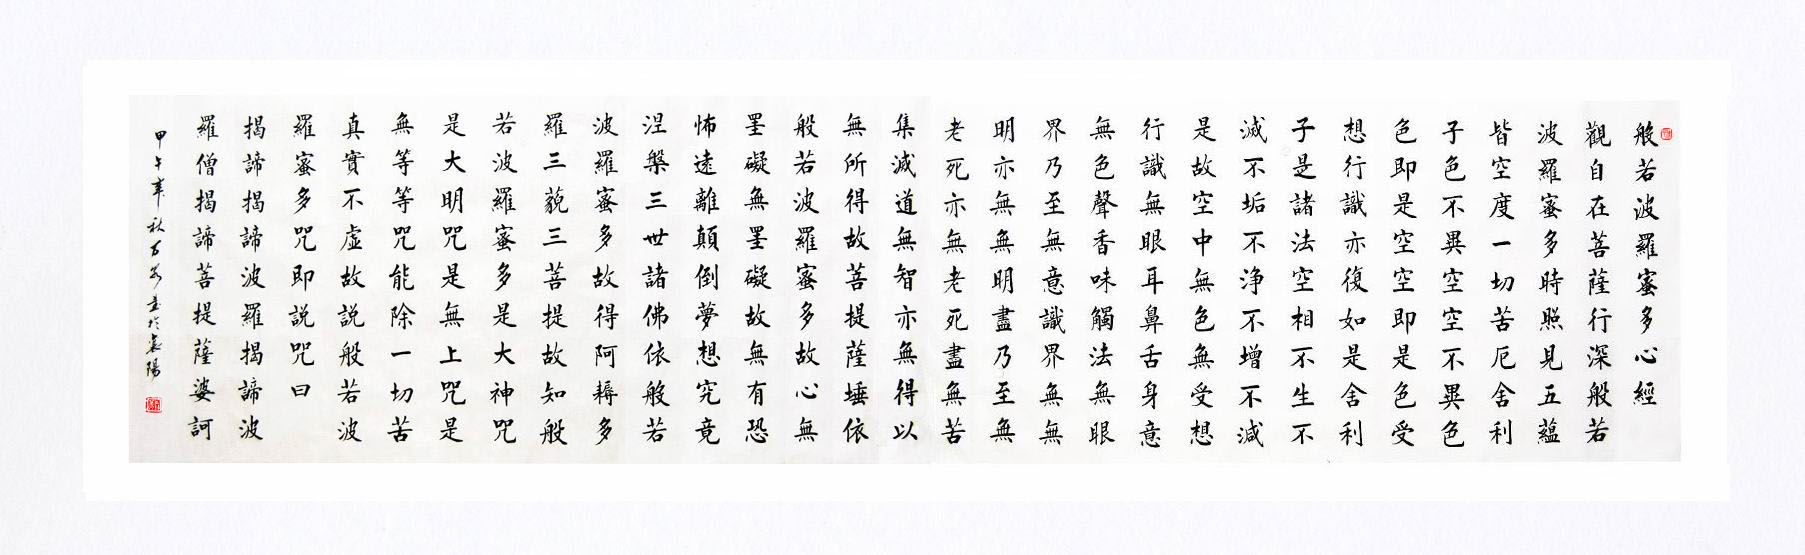 般若波羅蜜多心經
觀自在菩薩行深般若
波羅蜜多時照見五蘊
皆空度一切苦厄舍利
子色不異空空不異色
色即是空空即是色受
想行識亦復如是舍利
子是諸法空相不生不
滅不垢不净不增不減
是故空中無色無受想
行識無眼耳鼻舌身意
無色聲香味觸法無眼
界乃至無意識界無無
明亦無無明盡乃至無
老死亦無老死盡無苦
集滅道無智亦無得以
無所得故菩提薩埵依
般若波羅蜜多故心無
罣礙無罣礙故無有恐
怖遠離顛倒夢想究竟
涅槃三世諸佛依般若
波羅蜜多故得阿耨多
羅三藐三菩提故知般
若波羅蜜多是大神咒
是大明咒是無上咒是
無等等咒能除一切苦
真實不虛故說般若波
羅蜜多咒即說咒曰
揭諦揭諦波羅揭諦波
羅僧揭諦菩提薩婆訶
甲午年秋書於襄陽